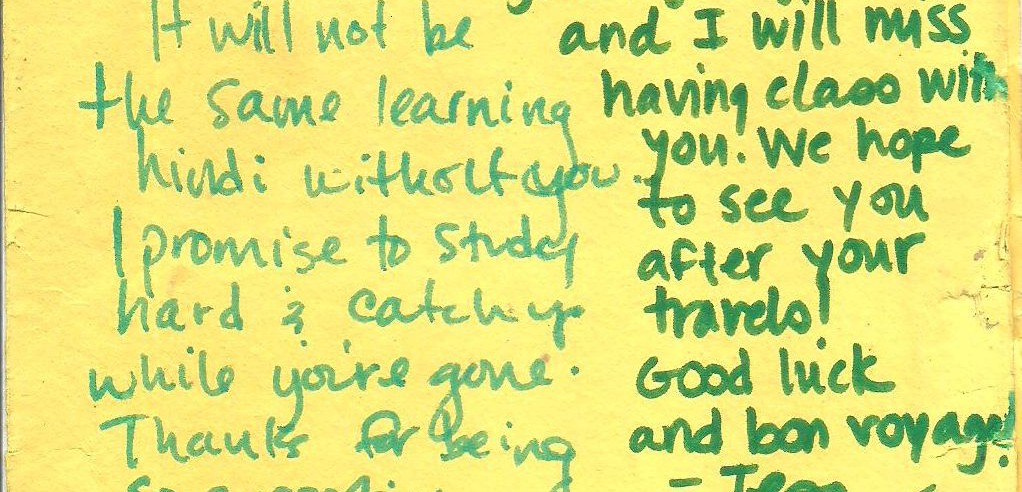 It will not be
the same learning
hindi without you.
I promise to study
hard & catch up
while you're gone.
Thanks for being
and I will miss
having class with
you. We hope
to see you
after your
travels!
Good luck
and bon voyage!